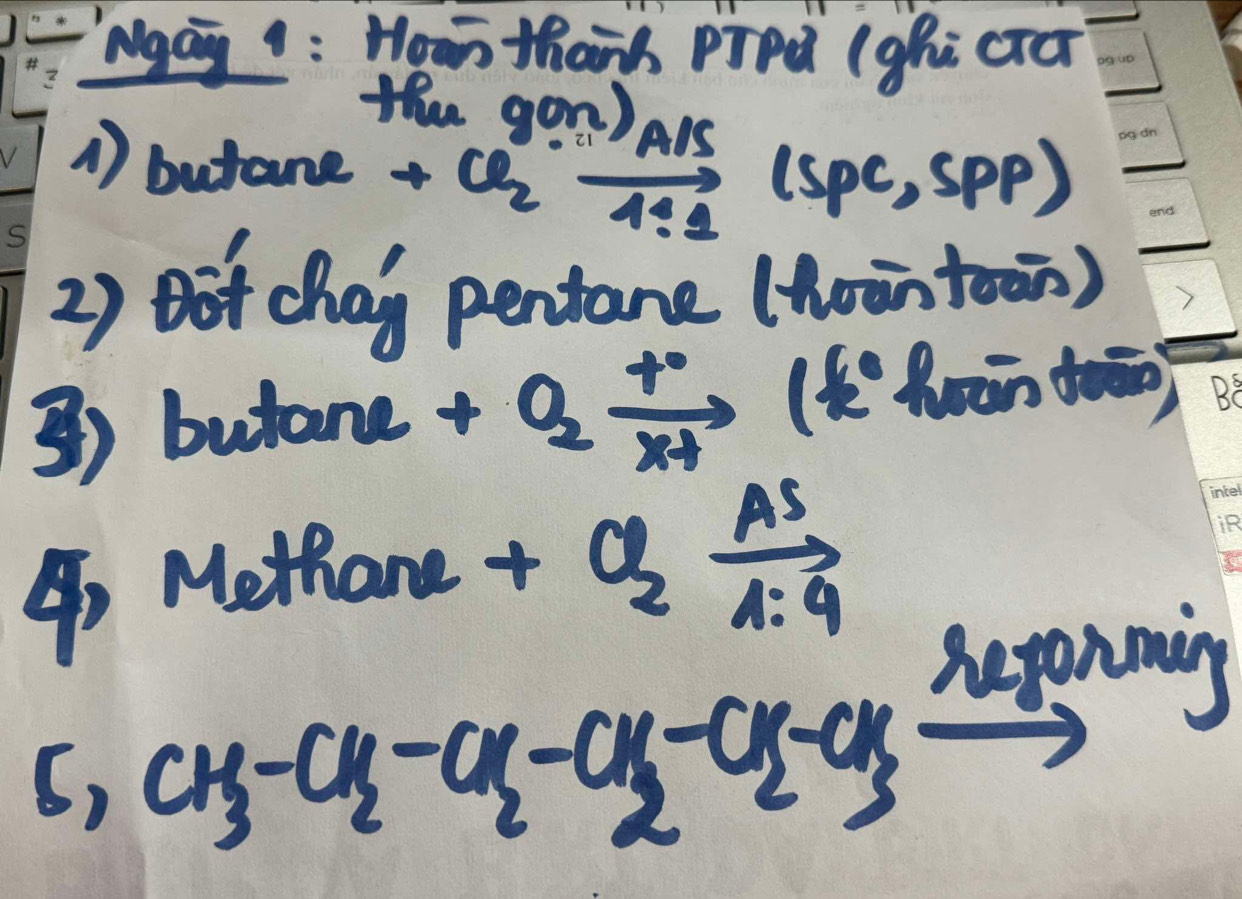 Ngày 1: Hoàn thành PTPứ (ghi CTCT
thu gọn)
12
1) butane + Cl₂ A/S → 1:1 (SPC, SPP)
2) Đốt cháy pentane (hoàn toàn)
3) butane + O₂ t° → xt (k° hoàn toàn)
4, Methane + Cl₂ AS → 1:4
5, CH₃-CH₂-CH₂-CH₂-CH₂-CH₃ reforming →
pg up
pg dn
end
intel